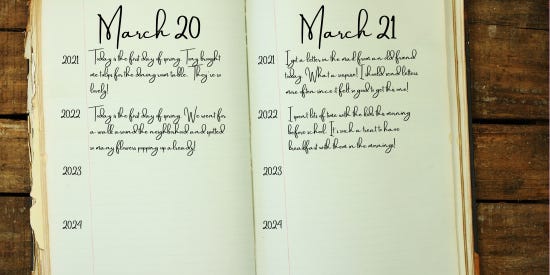 March 20
2021 Today is the first day of spring. Tony bought
me tulips for the dining room table. They're so
lovely!
2022 Today is the first day of spring. We went for
a walk around the neighborhood and spotted
so many flowers popping up already!
2023
2024
March 21
2021 I got a letter in the mail from an old friend
today. What a surprise! I should send letters
more often since it felt so good to get this one!
2022 I spent lots of time with the kids this morning
before school. It is such a treat to have
breakfast with them in the mornings!
2023
2024